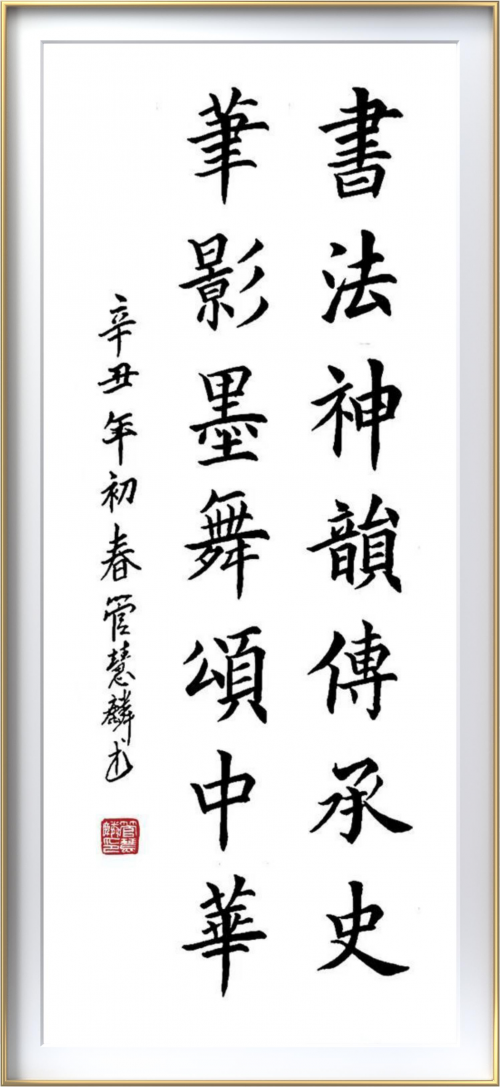 書法神韻傳承史
筆影墨舞頌中華
辛丑年初春管慧麟书
管慧麟印